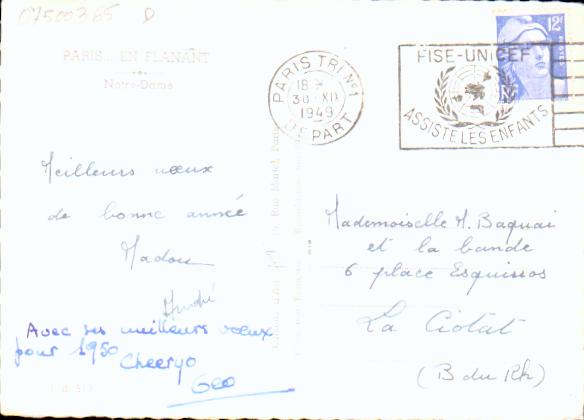 C7500365 D
PARIS... EN FLANANT
Notre-Dame
PARIS TRI Nº1
18
30 XII
1949
DEPART
FISE-UNICEF
ASSISTE LES ENFANTS
12F
Meilleurs vœux
de bonne année
Madou
André
Avec ses meilleurs vœux
pour 1950
Cheeryo
Geo
Mademoiselle M. Baquai
et la bande
6 place Esquissos
La Ciotat
(B du Rh)